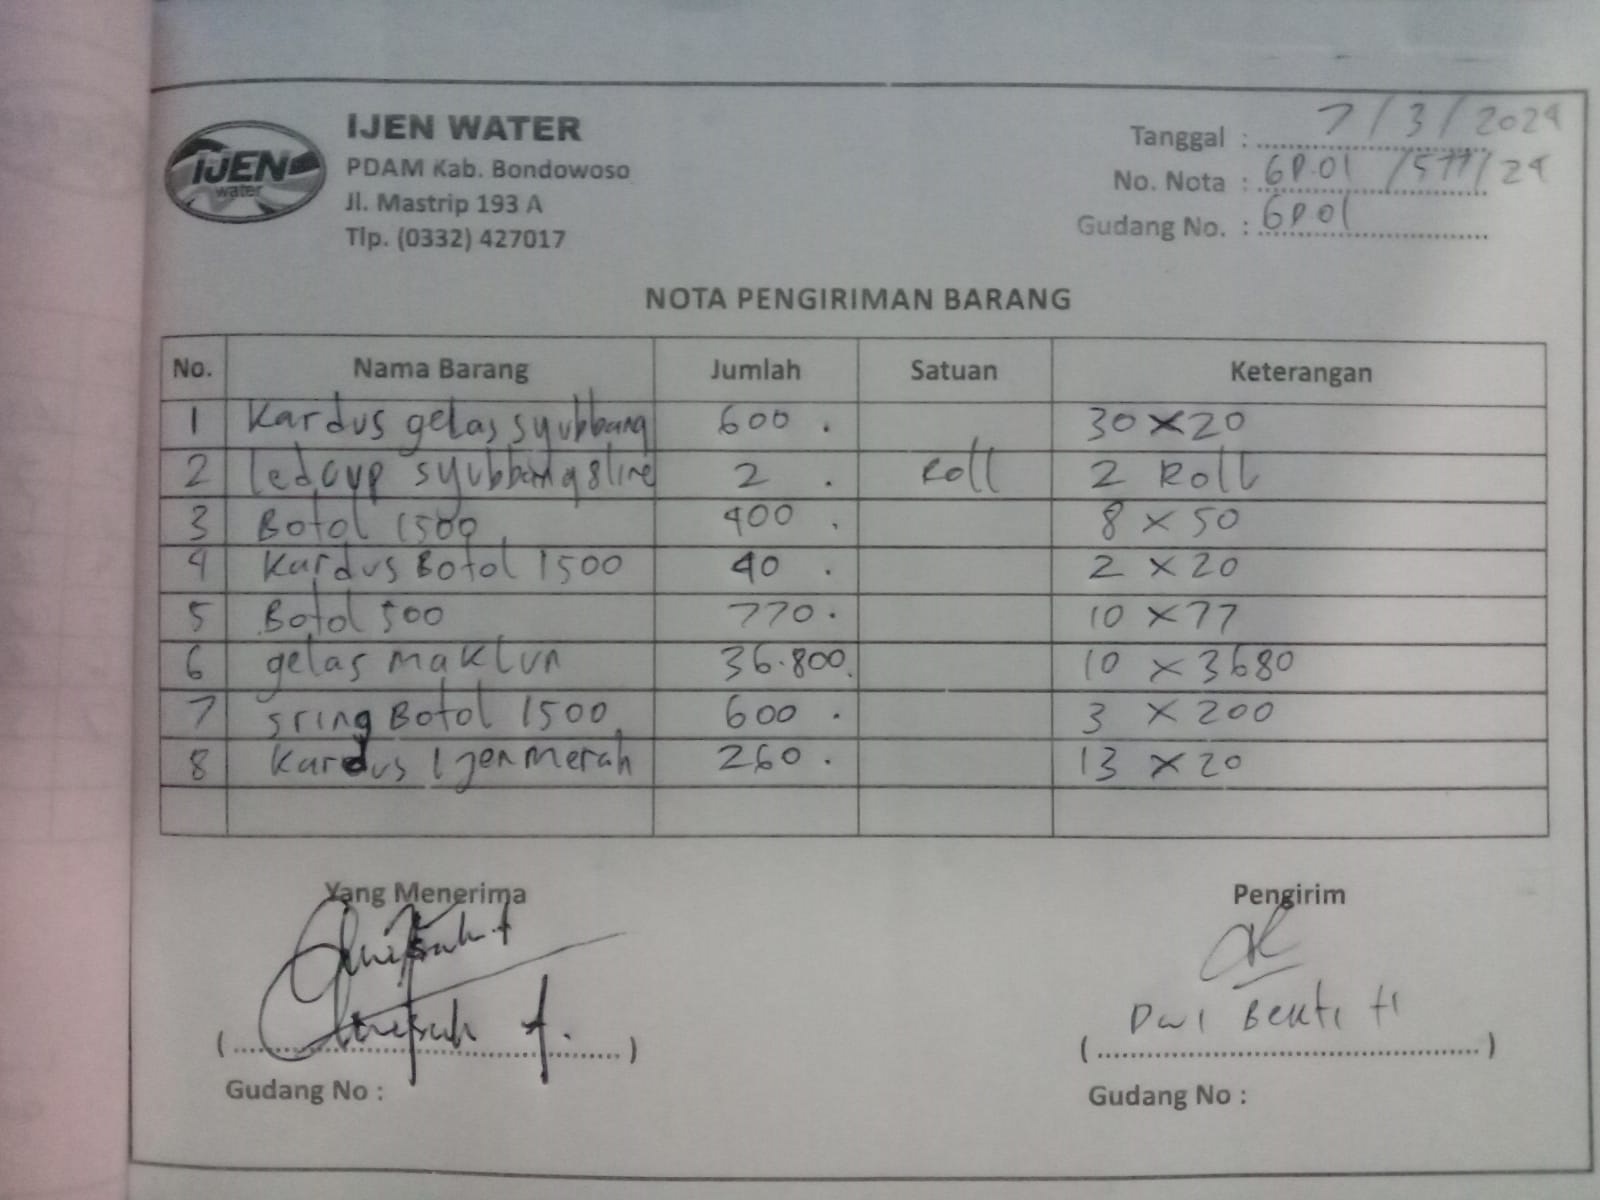 IJEN
water
IJEN WATER
PDAM Kab. Bondowoso
Jl. Mastrip 193 A
Tlp. (0332) 427017
Tanggal : 7/3/2024
No. Nota : GP.01 /511/24
Gudang No. : GP01
NOTA PENGIRIMAN BARANG
No. Nama Barang Jumlah Satuan Keterangan
1 Kardus gelas syubbang 600 . 30 x 20
2 ledcup syubbang 8 line 2 . Roll 2 Roll
3 Botol 1500 400 . 8 x 50
4 Kardus Botol 1500 40 . 2 x 20
5 Botol 500 770 . 10 x 77
6 gelas Maklun 36.800. 10 x 3680
7 sring Botol 1500 600 . 3 x 200
8 Kardus Ijen Merah 260 . 13 x 20
Yang Menerima Pengirim
Dwi Bekti H
Gudang No : Gudang No :